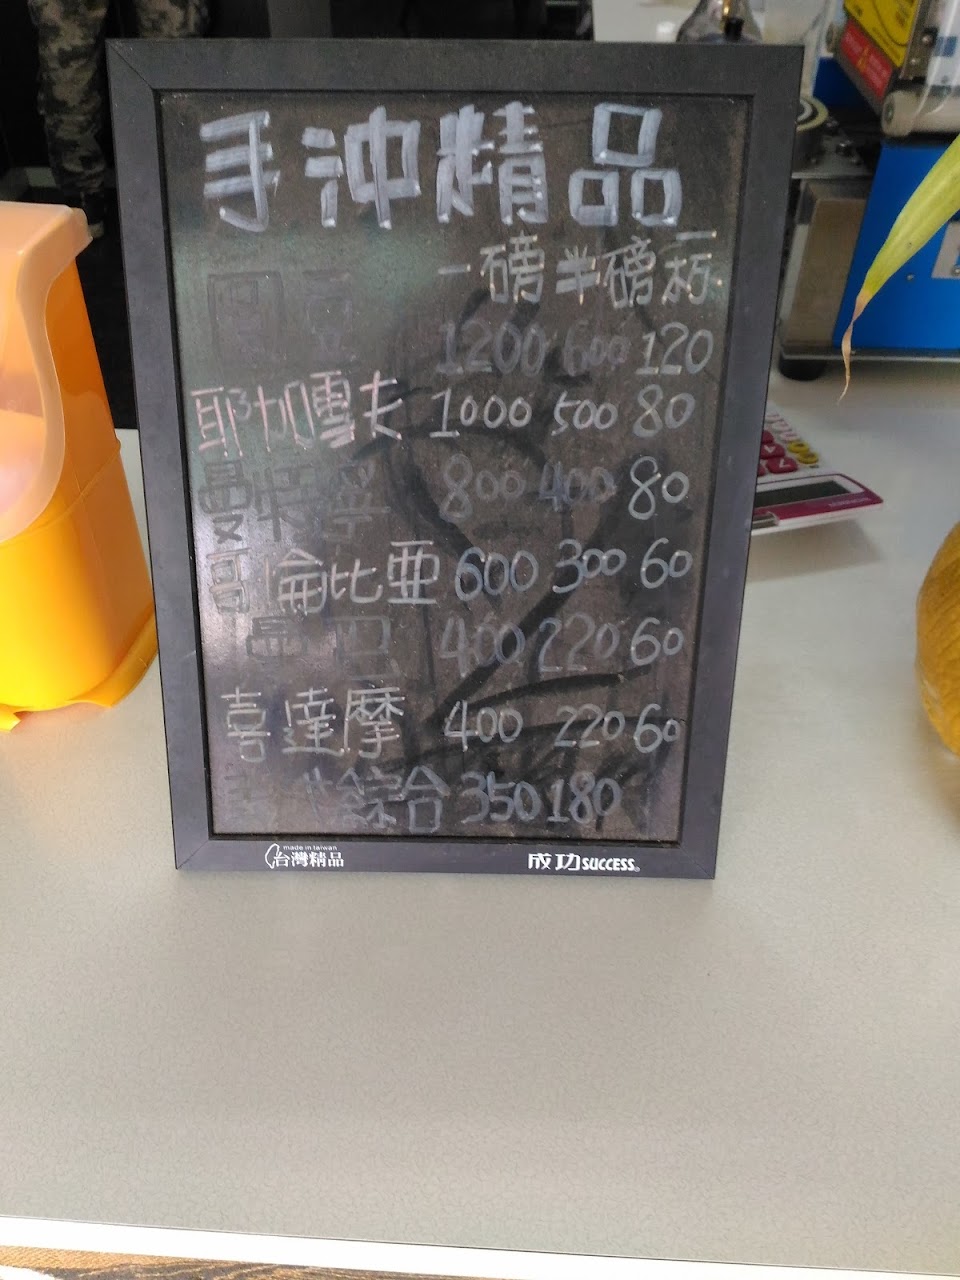 手沖精品
一磅 半磅 一杯
圓豆 1200 600 120
耶加雪夫 1000 500 80
曼特寧 800 400 80
哥倫比亜 600 300 60
400 220 60
喜達摩 400 220 60
綜合 350 180
made in taiwan
台灣精品
成功 SUCCESS®